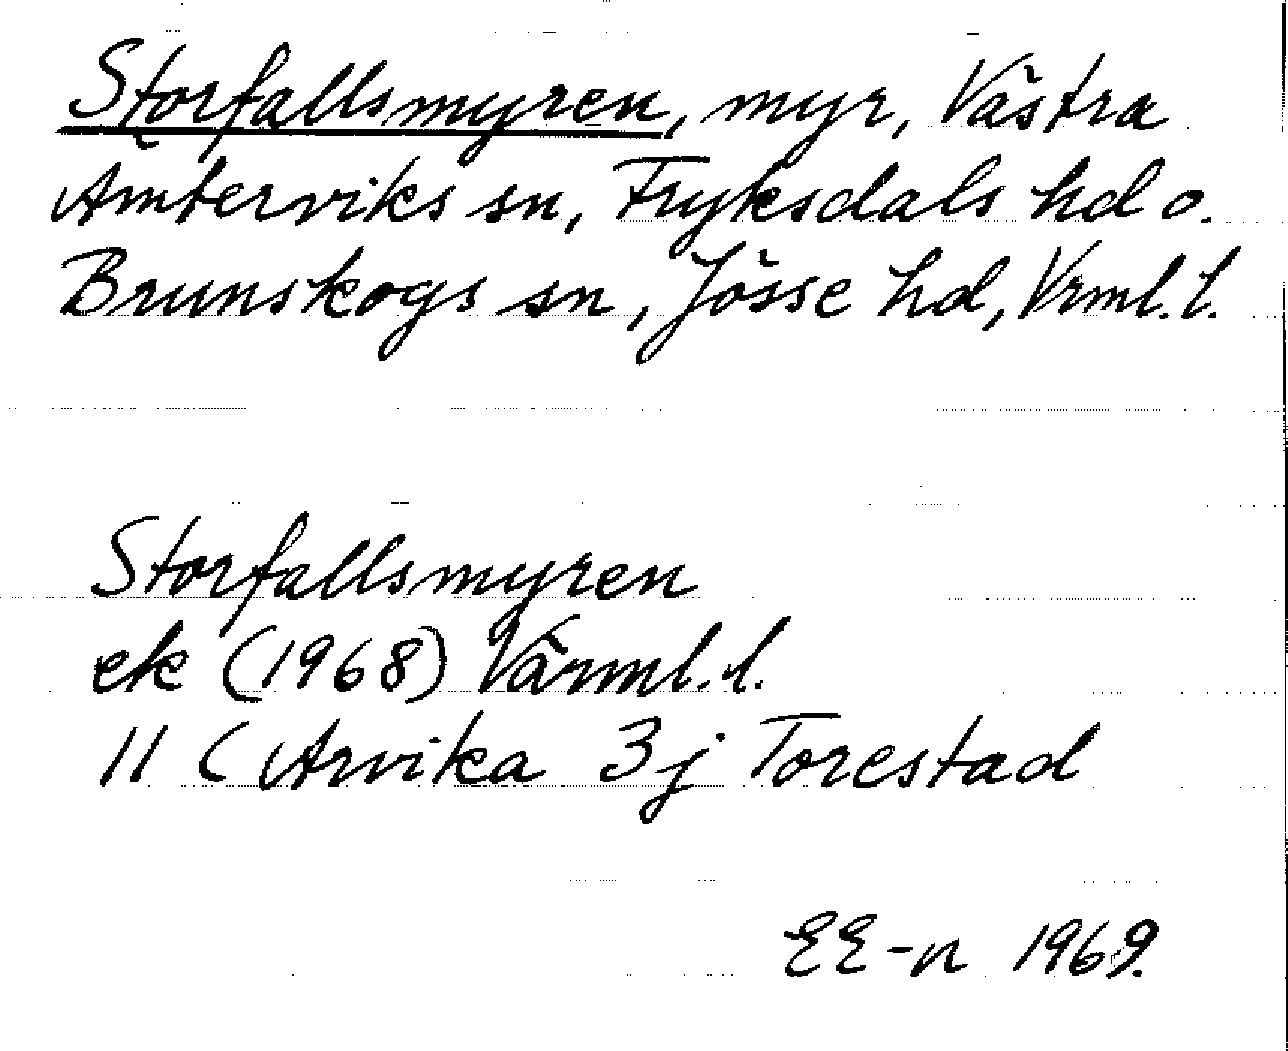 Storfallsmyren, myr, Västra
Ämterviks sn, Fryksdals hd o.
Brunskogs sn, Jösse hd, Vrml. l.
Storfallsmyren
ek (1968) Värml. l.
11 C Arvika 3j Torestad
EE-n 1969.